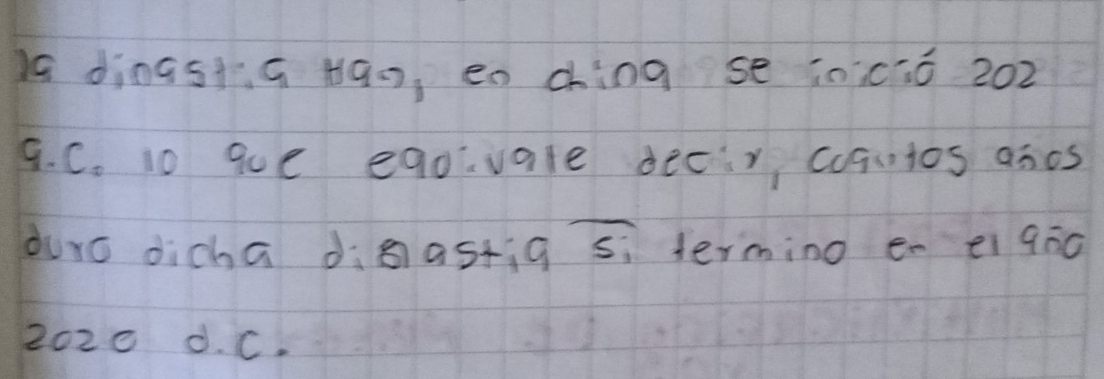 la dinastia Han, en china se inició 202
a.C. lo que equivale decir, cuantos años
duro dicha dinastia si termino en el año
2020 d.C.